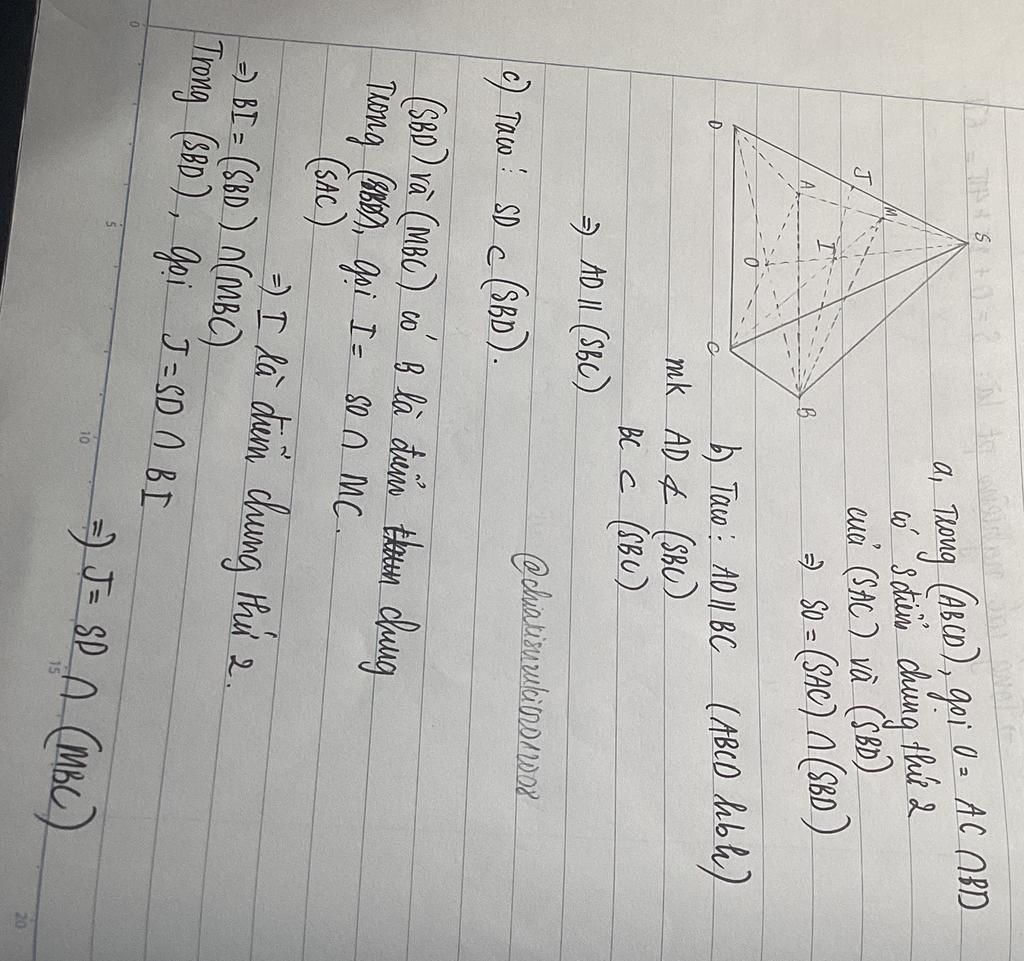 S
M
J
A
I
D
O
C
B
a, Trong (ABCD), gọi O = AC ∩ BD
có S điểm chung thứ 2
của (SAC) và (SBD)
=> SO = (SAC) ∩ (SBD)
b) Taco: AD // BC (ABCD hbh)
mk AD ⊄ (SBC)
BC ⊂ (SBC)
=> AD // (SBC)
@chiakisuzuki02011008
c) Taco: SD ⊂ (SBD).
(SBD) và (MBC) có B là điểm chung
Trong (SBD), gọi I = SO ∩ MC.
(SAC)
=> I là điểm chung thứ 2.
=> BI = (SBD) ∩ (MBC)
Trong (SBD), gọi J = SD ∩ BI
=> J = SD ∩ (MBC)
0
5
10
15
20